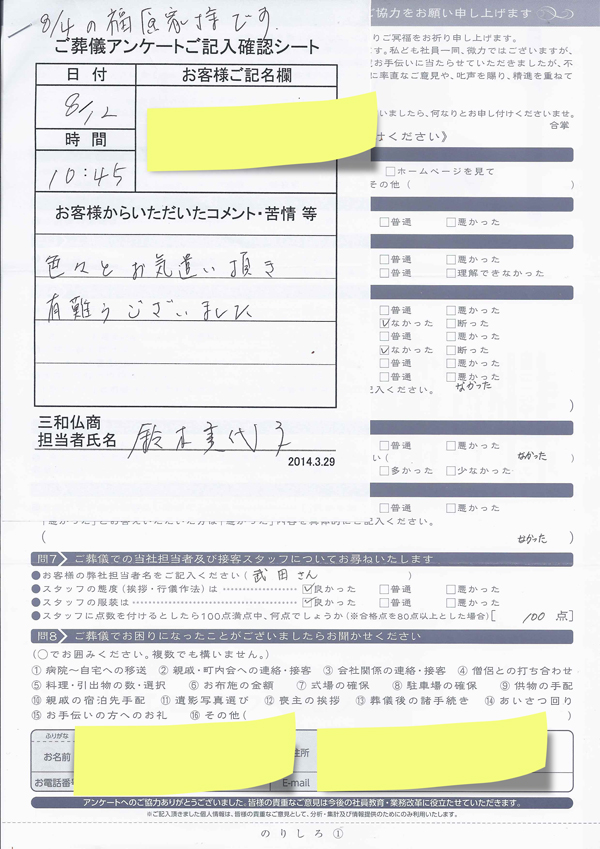 8/4の福原家様です
ご葬儀アンケートご記入確認シート
日 付
お客様ご記名欄
8/12
時 間
10:45
お客様からいただいたコメント・苦情 等
色々とお気遣い頂き
有難うございました
三和仏商
担当者氏名
2014.3.29
ご協力をお願い申し上げます
りご冥福をお祈り申し上げます。
す。私ども社員一同、微力ではございますが、
お手伝いに当たらせていただきましたが、不
に率直なご意見や、叱声を賜り、精進を重ねて
いましたら、何なりとお申し付けくださいませ。
合掌
けください》
□ホームページを見て
その他(
)
□普通 □悪かった
□普通 □悪かった
□普通 □理解できなかった
□普通 □悪かった
☑なかった □断った
□普通 □悪かった
☑なかった □断った
□普通 □悪かった
□普通 □悪かった
記入ください。 なかった
)
□普通 □悪かった
い( なかった )
□多かった □少なかった
□普通 □悪かった
「悪かった」とお答えいただいた方は「悪かった」内容を具体的にご記入ください。
( なかった )
問7 ご葬儀での当社担当者及び接客スタッフについてお尋ねいたします
●お客様の弊社担当者名をご記入ください( 武田さん )
●スタッフの態度(挨拶・行儀作法)は ☑良かった □普通 □悪かった
●スタッフの服装は ☑良かった □普通 □悪かった
●スタッフに点数を付けるとしたら100点満点中、何点でしょうか(※合格点を80点以上とした場合)[ 100 点]
問8 ご葬儀でお困りになったことがございましたらお聞かせください
(○でお囲みください。複数でも構いません。)
①病院〜自宅への移送 ②親戚・町内会への連絡・接客 ③会社関係の連絡・接客 ④僧侶との打ち合わせ
⑤料理・引出物の数・選択 ⑥お布施の金額 ⑦式場の確保 ⑧駐車場の確保 ⑨供物の手配
⑩親戚の宿泊先手配 ⑪遺影写真選び ⑫喪主の挨拶 ⑬葬儀後の諸手続き ⑭あいさつ回り
⑮お手伝いの方へのお礼 ⑯その他( )
ふりがな
お名前
住所
お電話番号
E-mail
アンケートへのご協力ありがとうございました。皆様の貴重なご意見は今後の社員教育・業務改革に役立たせていただきます。
※ご記入頂きました個人情報は、皆様の貴重なご意見として、分析・集計及び情報提供のためにのみ利用いたします。
のりしろ①